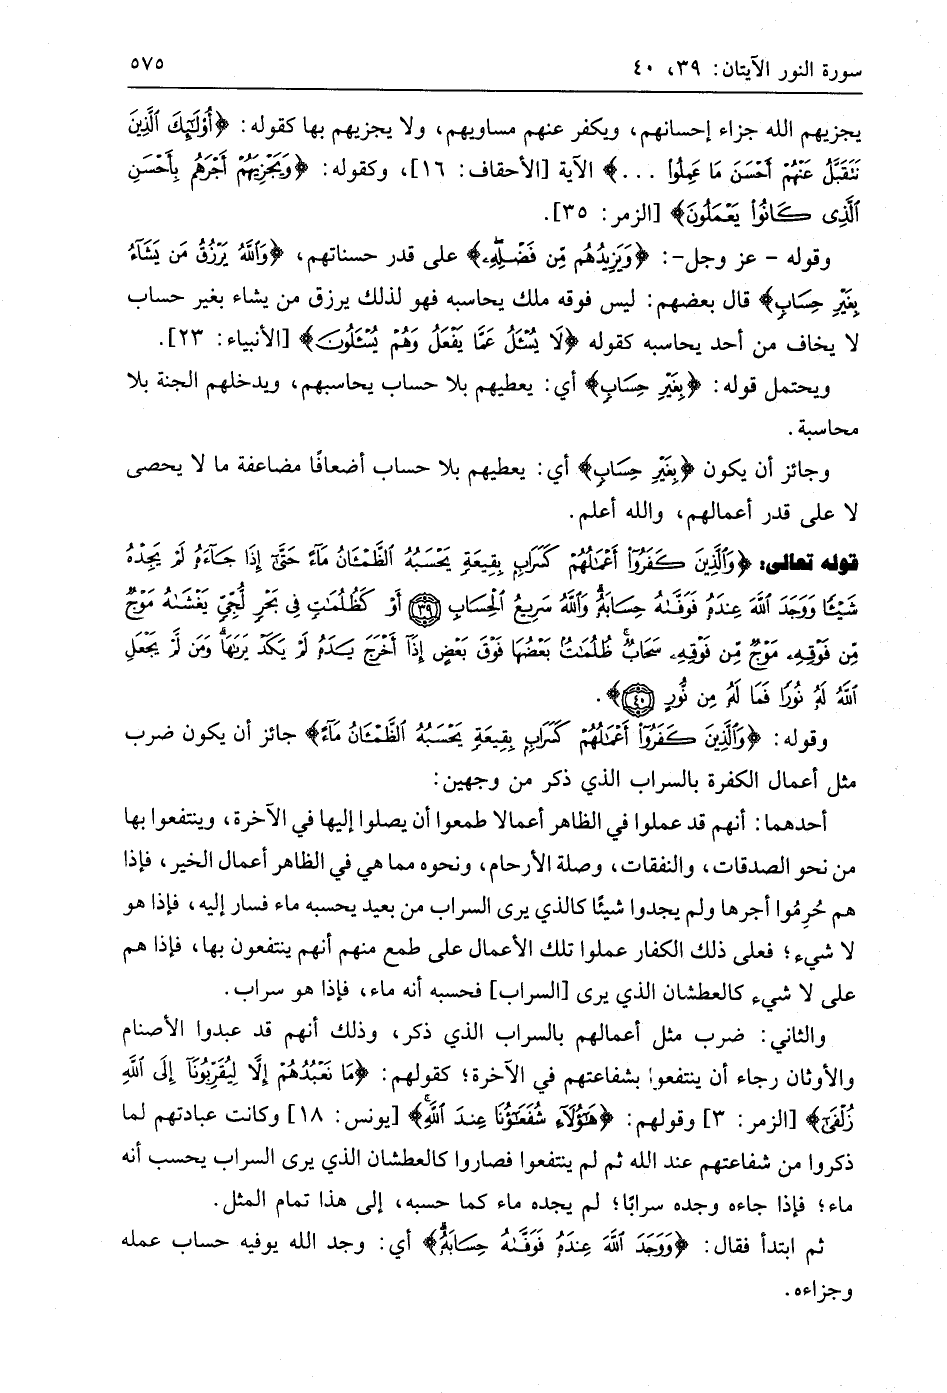 سورة النور الآيتان: ٣٩، ٤٠
٥٧٥
يجزيهم الله جزاء إحسانهم، ويكفر عنهم مساويهم، ولا يجزيهم بها كقوله: ﴿أُوْلَٰٓئِكَ ٱلَّذِينَ
نَتَقَبَّلُ عَنْهُمْ أَحْسَنَ مَا عَمِلُوا۟ ...﴾ الآية [الأحقاف: ١٦]، وكقوله: ﴿وَيَجْزِيَهُمْ أَجْرَهُم بِأَحْسَنِ
ٱلَّذِى كَانُوا۟ يَعْمَلُونَ﴾ [الزمر: ٣٥].
وقوله - عز وجل-: ﴿وَيَزِيدُهُم مِّن فَضْلِهِۦ﴾ على قدر حسناتهم، ﴿وَٱللَّهُ يَرْزُقُ مَن يَشَآءُ
بِغَيْرِ حِسَابٍ﴾ قال بعضهم: ليس فوقه ملك يحاسبه فهو لذلك يرزق من يشاء بغير حساب
لا يخاف من أحد يحاسبه كقوله ﴿لَا يُسْـَٔلُ عَمَّا يَفْعَلُ وَهُمْ يُسْـَٔلُونَ﴾ [الأنبياء: ٢٣].
ويحتمل قوله: ﴿بِغَيْرِ حِسَابٍ﴾ أي: يعطيهم بلا حساب يحاسبهم، ويدخلهم الجنة بلا
محاسبة.
وجائز أن يكون ﴿بِغَيْرِ حِسَابٍ﴾ أي: يعطيهم بلا حساب أضعافًا مضاعفة ما لا يحصى
لا على قدر أعمالهم، والله أعلم.
قوله تعالى: ﴿وَٱلَّذِينَ كَفَرُوٓا۟ أَعْمَٰلُهُمْ كَسَرَابٍۭ بِقِيعَةٍ يَحْسَبُهُ ٱلظَّمْـَٔانُ مَآءً حَتَّىٰٓ إِذَا جَآءَهُۥ لَمْ يَجِدْهُ
شَيْـًٔا وَوَجَدَ ٱللَّهَ عِندَهُۥ فَوَفَّىٰهُ حِسَابَهُۥ ۗ وَٱللَّهُ سَرِيعُ ٱلْحِسَابِ ﴿٣٩﴾ أَوْ كَظُلُمَٰتٍ فِى بَحْرٍ لُّجِّىٍّ يَغْشَىٰهُ مَوْجٌ
مِّن فَوْقِهِۦ مَوْجٌ مِّن فَوْقِهِۦ سَحَابٌ ۚ ظُلُمَٰتٌۢ بَعْضُهَا فَوْقَ بَعْضٍ إِذَآ أَخْرَجَ يَدَهُۥ لَمْ يَكَدْ يَرَىٰهَا ۗ وَمَن لَّمْ يَجْعَلِ
ٱللَّهُ لَهُۥ نُورًا فَمَا لَهُۥ مِن نُّورٍ ﴿٤٠﴾﴾.
وقوله: ﴿وَٱلَّذِينَ كَفَرُوٓا۟ أَعْمَٰلُهُمْ كَسَرَابٍۭ بِقِيعَةٍ يَحْسَبُهُ ٱلظَّمْـَٔانُ مَآءً﴾ جائز أن يكون ضرب
مثل أعمال الكفرة بالسراب الذي ذكر من وجهين:
أحدهما: أنهم قد عملوا في الظاهر أعمالا طمعوا أن يصلوا إليها في الآخرة، وينتفعوا بها
من نحو الصدقات، والنفقات، وصلة الأرحام، ونحوه مما هي في الظاهر أعمال الخير، فإذا
هم حُرِمُوا أجرها ولم يجدوا شيئًا كالذي يرى السراب من بعيد يحسبه ماء فسار إليه، فإذا هو
لا شيء؛ فعلى ذلك الكفار عملوا تلك الأعمال على طمع منهم أنهم ينتفعون بها، فإذا هم
على لا شيء كالعطشان الذي يرى [السراب] فحسبه أنه ماء، فإذا هو سراب.
والثاني: ضرب مثل أعمالهم بالسراب الذي ذكر، وذلك أنهم قد عبدوا الأصنام
والأوثان رجاء أن ينتفعوا بشفاعتهم في الآخرة؛ كقولهم: ﴿مَا نَعْبُدُهُمْ إِلَّا لِيُقَرِّبُونَآ إِلَى ٱللَّهِ
زُلْفَىٰٓ﴾ [الزمر: ٣] وقولهم: ﴿هَٰٓؤُلَآءِ شُفَعَٰٓؤُنَا عِندَ ٱللَّهِ ۚ﴾ [يونس: ١٨] وكانت عبادتهم لما
ذكروا من شفاعتهم عند الله ثم لم ينتفعوا فصاروا كالعطشان الذي يرى السراب يحسب أنه
ماء؛ فإذا جاءه وجده سرابًا؛ لم يجده ماء كما حسبه، إلى هذا تمام المثل.
ثم ابتدأ فقال: ﴿وَوَجَدَ ٱللَّهَ عِندَهُۥ فَوَفَّىٰهُ حِسَابَهُۥ ۗ﴾ أي: وجد الله يوفيه حساب عمله
وجزاءه.